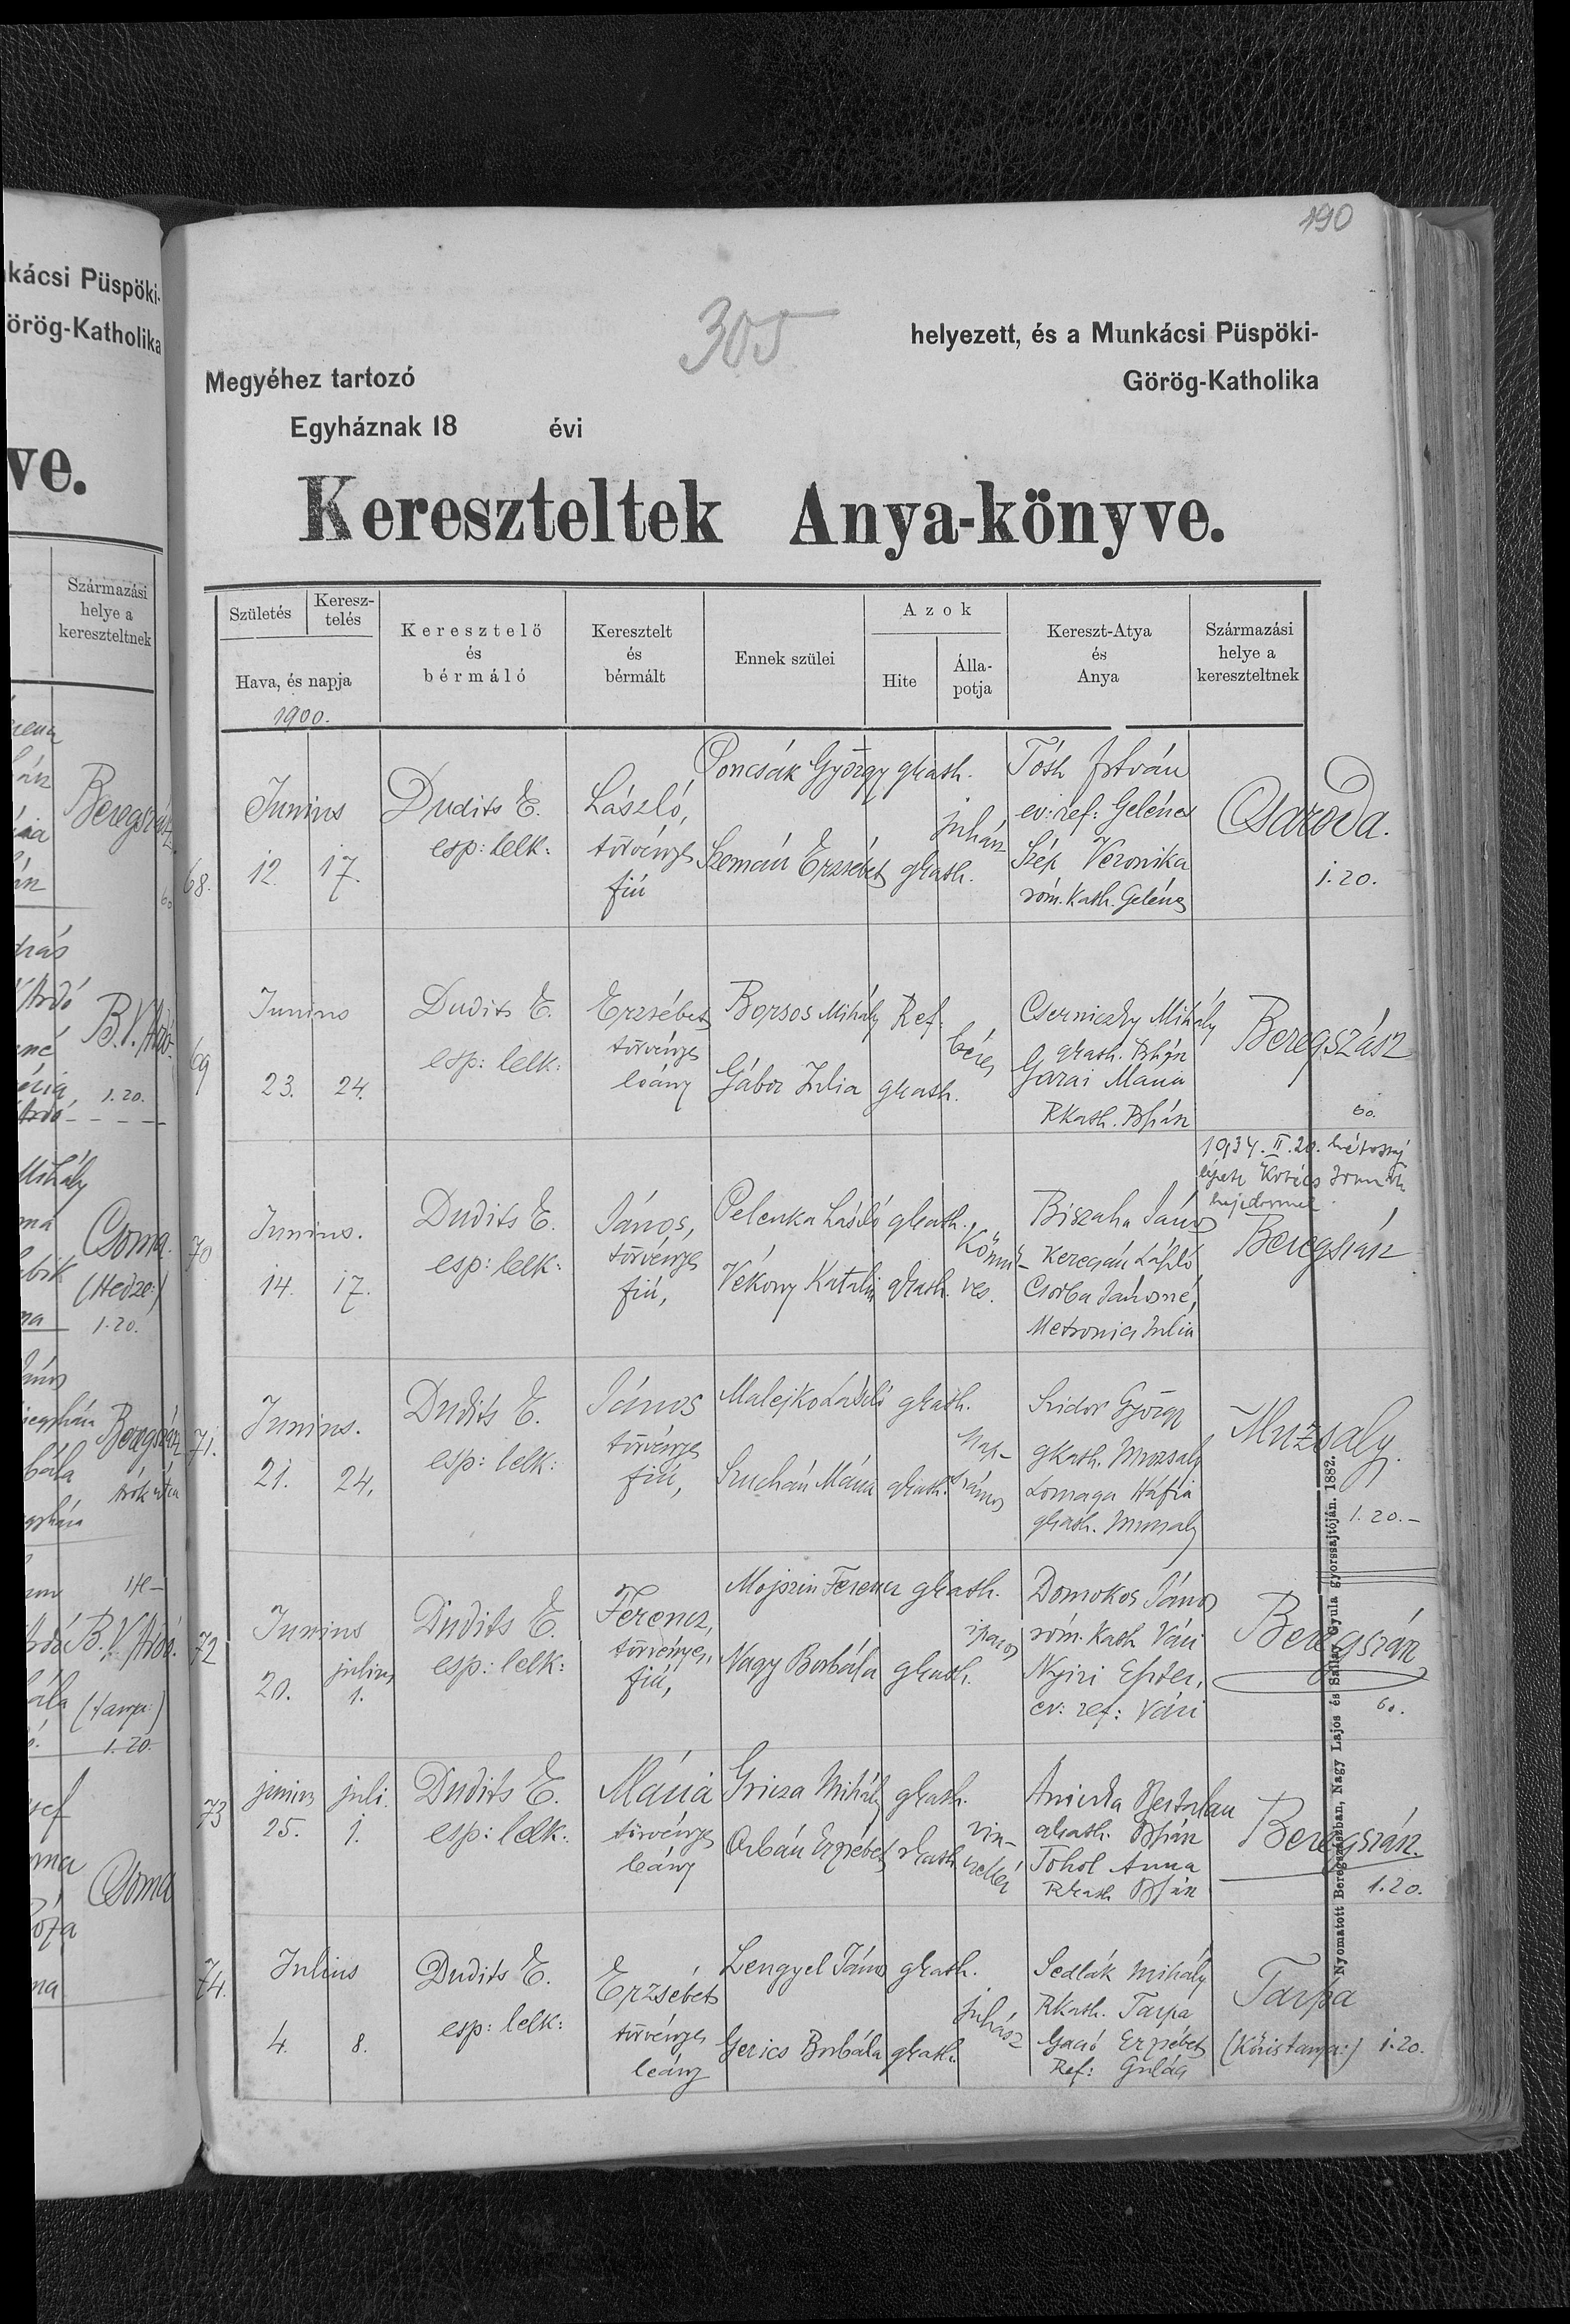 190
305
helyezett, és a Munkácsi Püspöki-
Megyéhez tartozó
Görög-Katholika
Egyháznak 18 évi
Kereszteltek Anya-könyve.
Születés
Keresz-
telés
Hava, és napja
1900.
Keresztelő
és
bérmáló
Keresztelt
és
bérmált
Ennek szülei
Azok
Hite
Álla-
potja
Kereszt-Atya
és
Anya
Származási
helye a
kereszteltnek
68.
Junius
12. 17.
Dudits E.
esp: lelk:
László,
törvényes
fiú
Poncsák György gkath.
Szemán Erzsébet gkath.
juhász
Tóth István
ev: ref: Gelénes
Szép Veronika
róm. kath. Gelénes
Csaroda.
1.20.
69
Junius
23. 24.
Dudits E.
esp: lelk:
Erzsébet
törvényes
leány
Borsos Mihály Ref.
Gábor Julia gkath.
béres
Cserniczky Mihály
gkath. Bszász
Garai Mária
Rkath. Bszász
Beregszász
60.
1934. II. 20.
70
Junius.
14. 17.
Dudits E.
esp: lelk:
János,
törvényes
fiú,
Pelenka László gkath.
Vékony Katalin gkath.
Kőmü-
ves.
Biszaha János
Csorba Jánosné,
Metronics Julia
Beregszász
71.
Junius.
21. 24.
Dudits E.
esp: lelk:
János
törvényes
fiú,
Malejko László gkath.
Szuchán Mária gkath.
nap-
számos
Szidor György
gkath. Muzsaly
Lomaga Háfia
gkath. Muzsaly
Muzsaly.
1.20.-
72
Junius
20. julius
1.
Dudits E.
esp: lelk:
Ferencz,
törvényes,
fiú,
Mojszin Ferencz gkath.
Nagy Borbála gkath.
iparos
Domokos János
róm. kath Vári
Nyiri Eszter,
ev: ref: Vári
Beregszász
60.
73
junius juli.
25. 1.
Dudits E.
esp: lelk:
Mária
törvényes
leány
Gricza Mihály gkath.
Orbán Erzsébet rkath
vin-
czellér
gkath. Bszász
Tohol Anna
Rkath Bszász
Beregszász.
1.20.
74.
Julius
4. 8.
Dudits E.
esp: lelk:
Erzsébet
törvényes
leány
Lengyel János gkath.
Gerics Borbála gkath.
juhász
Sedlák Mihály
Rkath. Tarpa
Erzsébet
Ref: Gulács
Tarpa
1.20.
Nyomatott Beregszászban, Nagy Lajos és Sallay Gyula gyorssajtóján. 1882.
kácsi Püspöki-
örög-Katholika
ve.
Származási
helye a
kereszteltnek
Beregszász
B.V. Ardó.
1.20.
Mihály
Csoma.
1.20.
Beregszász
B.V. Ardó.
1.20.
Csoma